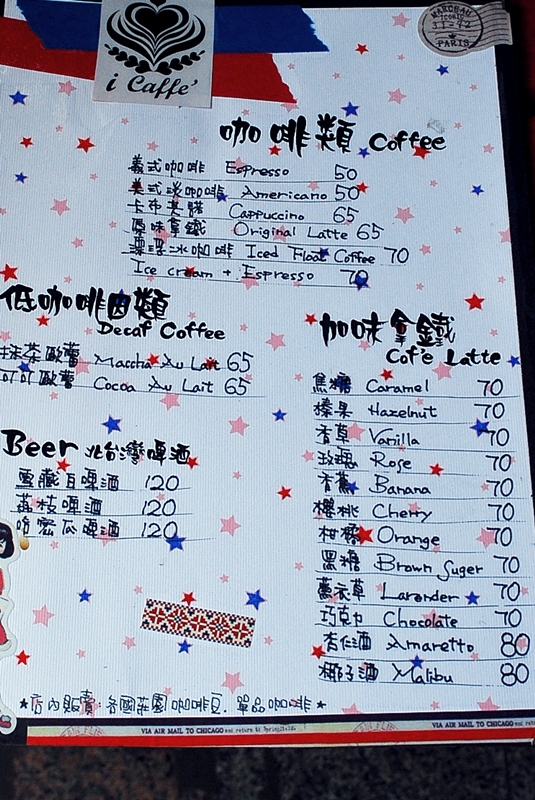 i Caffe'
MARCHAU
ICONIC
31-42
PARIS
咖啡類 Coffee
義式咖啡 Espresso 50
美式淡咖啡 Americano 50
卡布其諾 Cappuccino 65
原味拿鐵 Original Latte 65
漂浮冰咖啡 Iced Float Coffee 70
Ice cream + Espresso 70
低咖啡因類
Decaf Coffee
抹茶歐蕾 Maccha Au Lait 65
可可歐蕾 Cocoa Au Lait 65
Beer 北台灣啤酒
雪藏白啤酒 120
荔枝啤酒 120
哈密瓜啤酒 120
加味拿鐵
Cofe Latte
焦糖 Caramel 70
榛果 Hazelnut 70
香草 Vanilla 70
玫瑰 Rose 70
香蕉 Banana 70
櫻桃 Cherry 70
柑橘 Orange 70
黑糖 Brown Suger 70
薰衣草 Larender 70
巧克力 Chocolate 70
杏仁酒 Amaretto 80
椰子酒 Malibu 80
*店內販賣 各國莊園咖啡豆.單品咖啡*
VIA AIR MAIL TO CHICAGO and return to Springfield.
VIA AIR MAIL TO CHICAGO